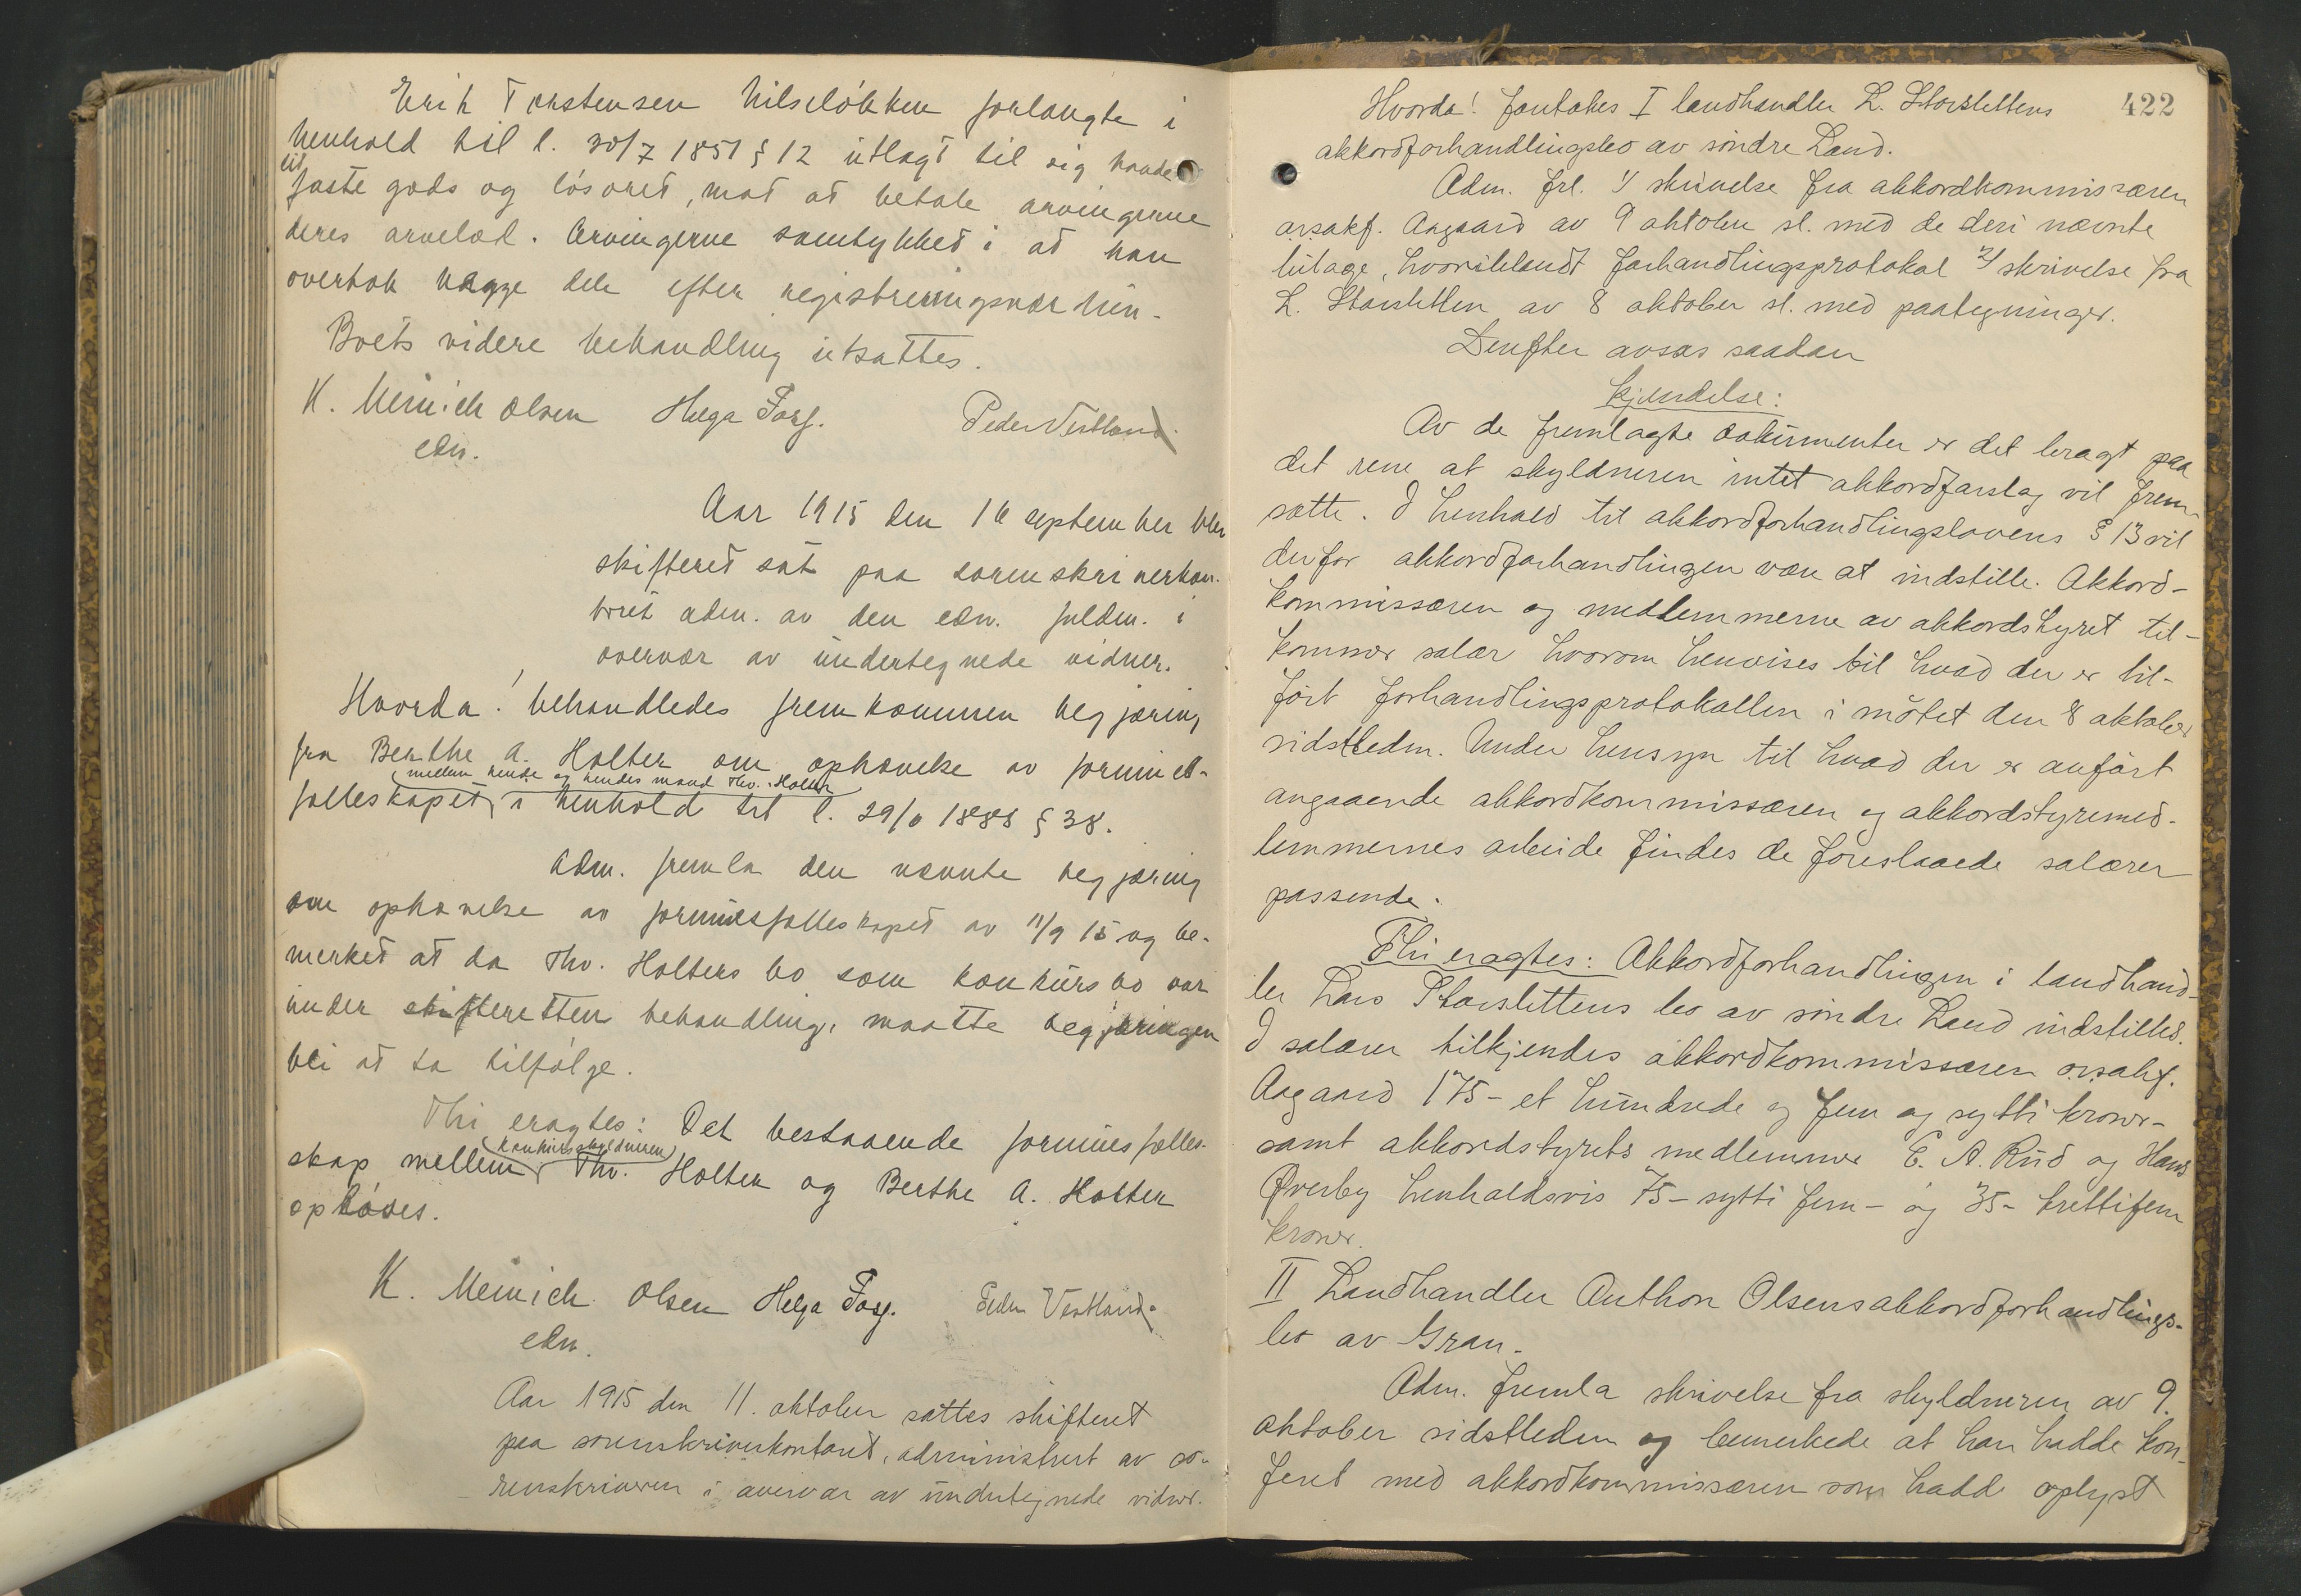 Erik Torstensen Nilseløkken forlangte i
henhold til l. 30/7 1851 § 12 utlagt til sig baade
ut
faste gods og løsøret, mot at betale arvingerne
deres arvelod. Arvingerne samtykket i at han
overtok begge dele efter registreringsværdien.
Boets videre behandling utsattes.
K. Meinich Olsen Helga Fosf. Peder Vestland
edn.
Aar 1915 den 16 september blev
skifteret sat paa sorenskriverkon-
toret adm. av den edn. fuldm. i
overvær av undertegnede vidner.
Hvorda! behandledes fremkommen begjæring
fra Berthe A. Holter om ophævelse av formues-
(mellem hende og hendes mand Thv. Holter)
fælleskapet i henhold til l. 29/6 1888 § 38.
Adm. fremla den nævnte begjæring
om ophævelse av formuesfælleskapet av 11/9 15 og be-
merket at da Thv. Holters bo som konkursbo var
under skifterettens behandling, maatte begjæringen
bli at ta tilfølge.
Thi eragtes: Det bestaaende formuesfælles-
(konkursskyldneren)
skap mellem Thv. Holter og Berthe A. Holter
opløses.
K. Meinich Olsen Helga Fosf. Peder Vestland
edn.
Aar 1915 den 11. oktober sattes skifteret
paa sorenskriverkontoret, administrert av so-
renskriveren i overvær av undertegnede vidner.
422
Hvorda! foretokes I landhandler L. Storslettens
akkordforhandlingsbo av søndre Land.
Adm. frl. 1/ skrivelse fra akkordkommissæren
o.r.sakf. Aagaard av 9 oktober sl. med de deri nævnte
bilage, hvoriblandt forhandlingsprotokol 2/ skrivelse fra
L. Storsletten av 8 oktober sl. med paategninger.
Derefter avsas saadan
kjendelse:
Av de fremlagte dokumenter er det bragt paa
det rene at skyldneren intet akkordforslag vil frem-
sætte. I henhold til akkordforhandlingslovens § 13 vil
derfor akkordforhandlingen være at indstille. Akkord-
kommissæren og medlemmerne av akkordstyret til-
kommer salær hvorom henvises til hvad der er til-
ført forhandlingsprotokollen i møtet den 8 oktober
sidstleden. Under hensyn til hvad der er anført
angaaende akkordkommissæren og akkordstyremed-
lemmernes arbeide findes de foreslaaede salærer
passende.
Thi eragtes: Akkordforhandlingen i landhand-
ler Lars Storslettens bo av søndre Land indstilles.
I salærer tilkjendes akkordkommissæren o.r.sakf.
Aagaard 175 - et hundrede og fem og sytti kroner -
samt akkordstyrets medlemmer E. A. Rud og Hans
Øverby henholdsvis 75 - sytti fem - og 35 - trettifem
kroner.
II Landhandler Anthon Olsens akkordforhandlings-
bo av Gran.
Adm. fremla skrivelse fra skyldneren av 9.
oktober sidstleden og bemerkede at han hadde kon-
feret med akkordkommissæren som hadde oplyst